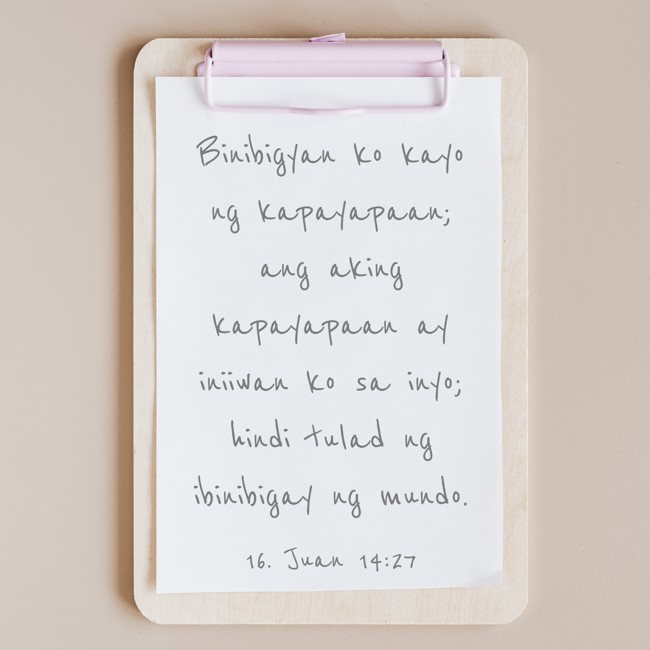 Binibigyan ko kayo
ng kapayapaan;
ang aking
kapayapaan ay
iniiwan ko sa inyo;
hindi tulad ng
ibinibigay ng mundo.
16. Juan 14:27